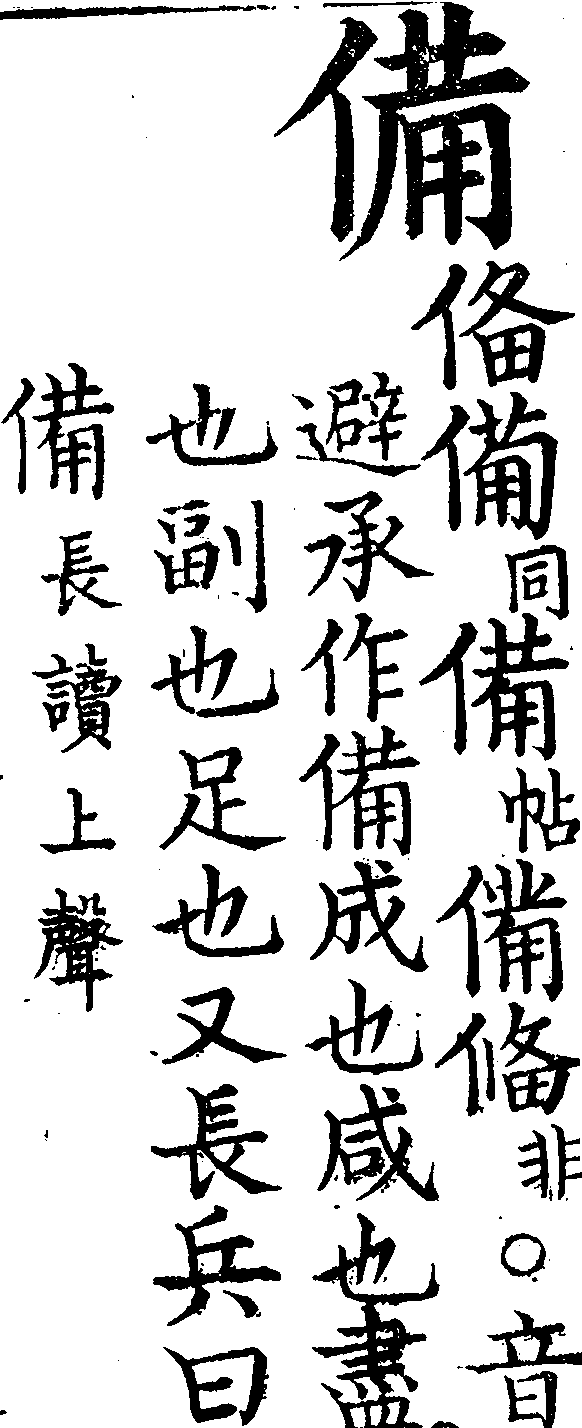 備
俻
同
帖
非
○音
避承作備成也咸也盡
也副也足也又長兵曰
備長讀上聲